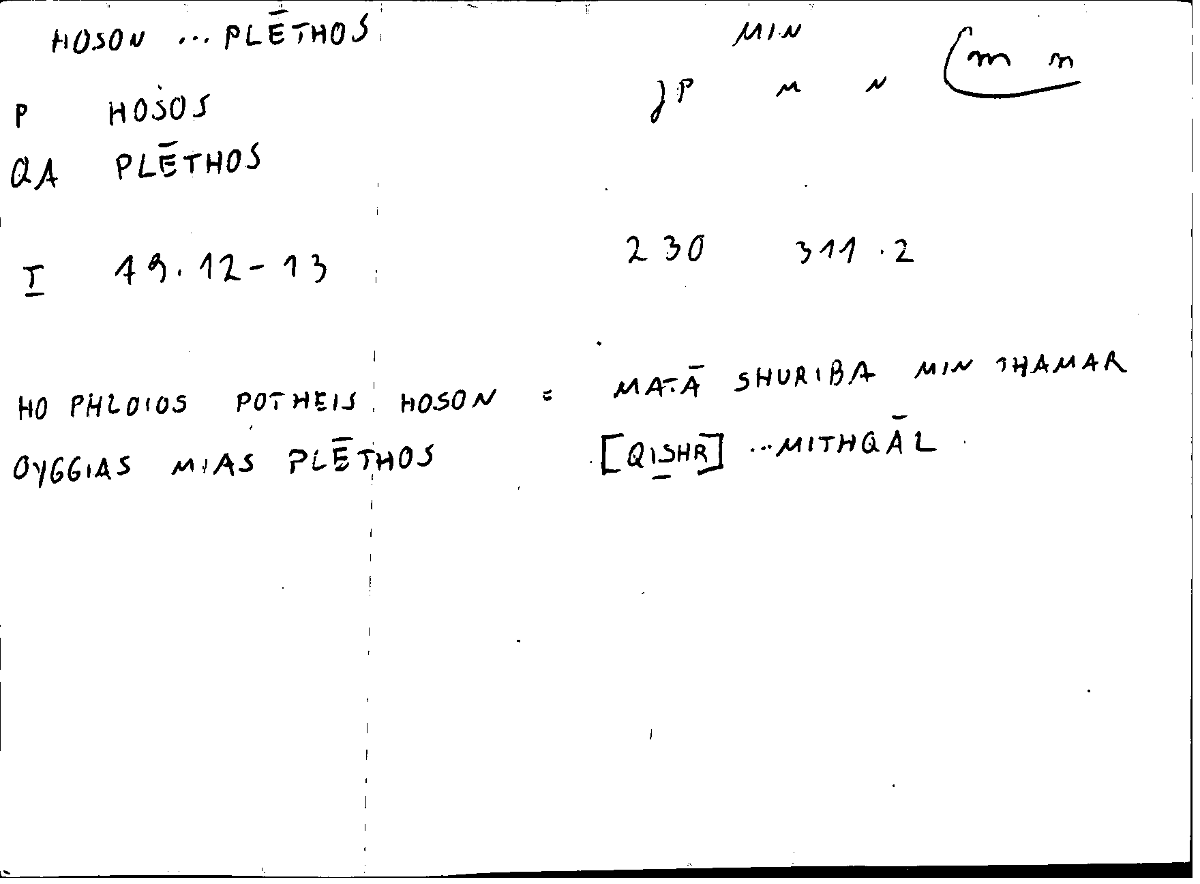 HOSON ... PLĒTHOS MIN
P HOSOS JP M N (m n
QA PLĒTHOS
I 49.12-13 230 311.2
HO PHLOIOS POTHEIS HOSON = MATĀ SHURIBA MIN THAMAR
OYGGIAS MIAS PLĒTHOS [QISHR] ...MITHQĀL